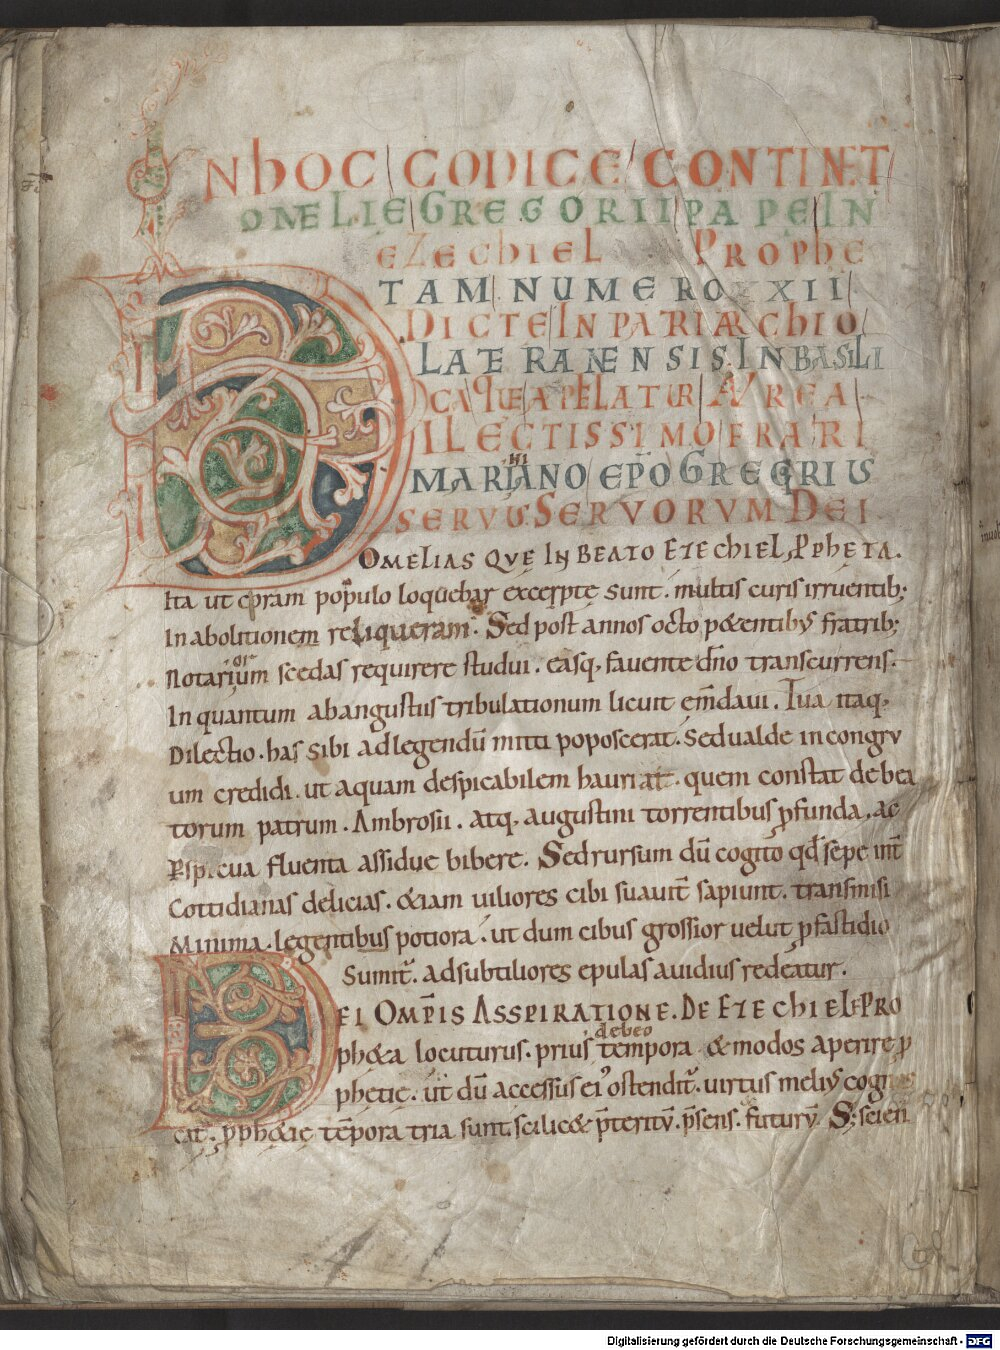 IN hOC CODICE CONTINET
OMELIE GREGORII PAPE IN
EZEChIEL PROPhE
TAM NUMERO XII
DICTE IN PATRIARChIO
LATERANENSIS. IN BASILI
CA QUE APELLATUR AUREA
DILECTISSIMO FRATRI
MARIANO EP̄O GREGORIUS
SERVUS SERVORUM DEI
OMELIAS QVE IN BEATO EZEChIEL PPHETA.
Ita ut coram populo loquebar excerpte sunt. multis curis irruentib;
In abolitionem reliqueram. Sed post annos octo petentibus fratrib;
Notariorum scedas requirere studui. easq, favente dn̄o transcurrens.
In quantum ab angustiis tribulationum licuit em̄davi. Tua itaq,
Dilectio. has sibi ad legendū mitti poposcerat. Sed valde incongru
um credidi. ut aquam despicabilem hauriat. quem constat de bea
torum patrum. Ambrosii. atq, augustini torrentibus pfunda. ac
Pspicua fluenta assidue bibere. Sed rursum dū cogito qd̄ sepe int̄
Cottidianas delicias. &iam viliores cibi suavit̄ sapiunt. transmisi
Minima. legentibus potiora. ut dum cibus grossior velut p fastidio
Sumit̄. ad subtiliores epulas avidius redeatur.
DEI OMP̄IS ASSPIRATIONE. DE EZEChIELE PRO
ph&a locuturus. prius debeo tempora & modos aperire p
phetie. ut dū accessus ei' ostendit̄. virtus melius cognos
cat̄. pph&ie tēpora tria sunt. scilic& p̄teritū. p̄sens. futurū. S; scien
Digitalisierung gefördert durch die Deutsche Forschungsgemeinschaft - DFG